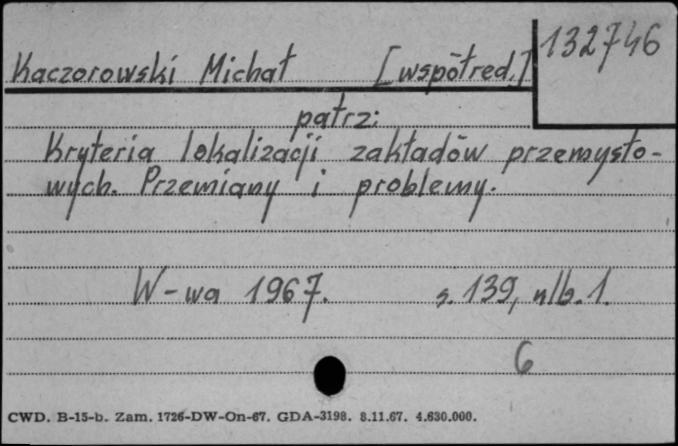 132746
Kaczorowski Michał [współred.]
patrz:
Kryteria lokalizacji zakładów przemysło-
wych. Przemiany i problemy.
W-wa 1967. s. 139, nlb. 1.
6
CWD. B-15-b. Zam. 1726-DW-On-67. GDA-3198. 8.11.67. 4.630.000.